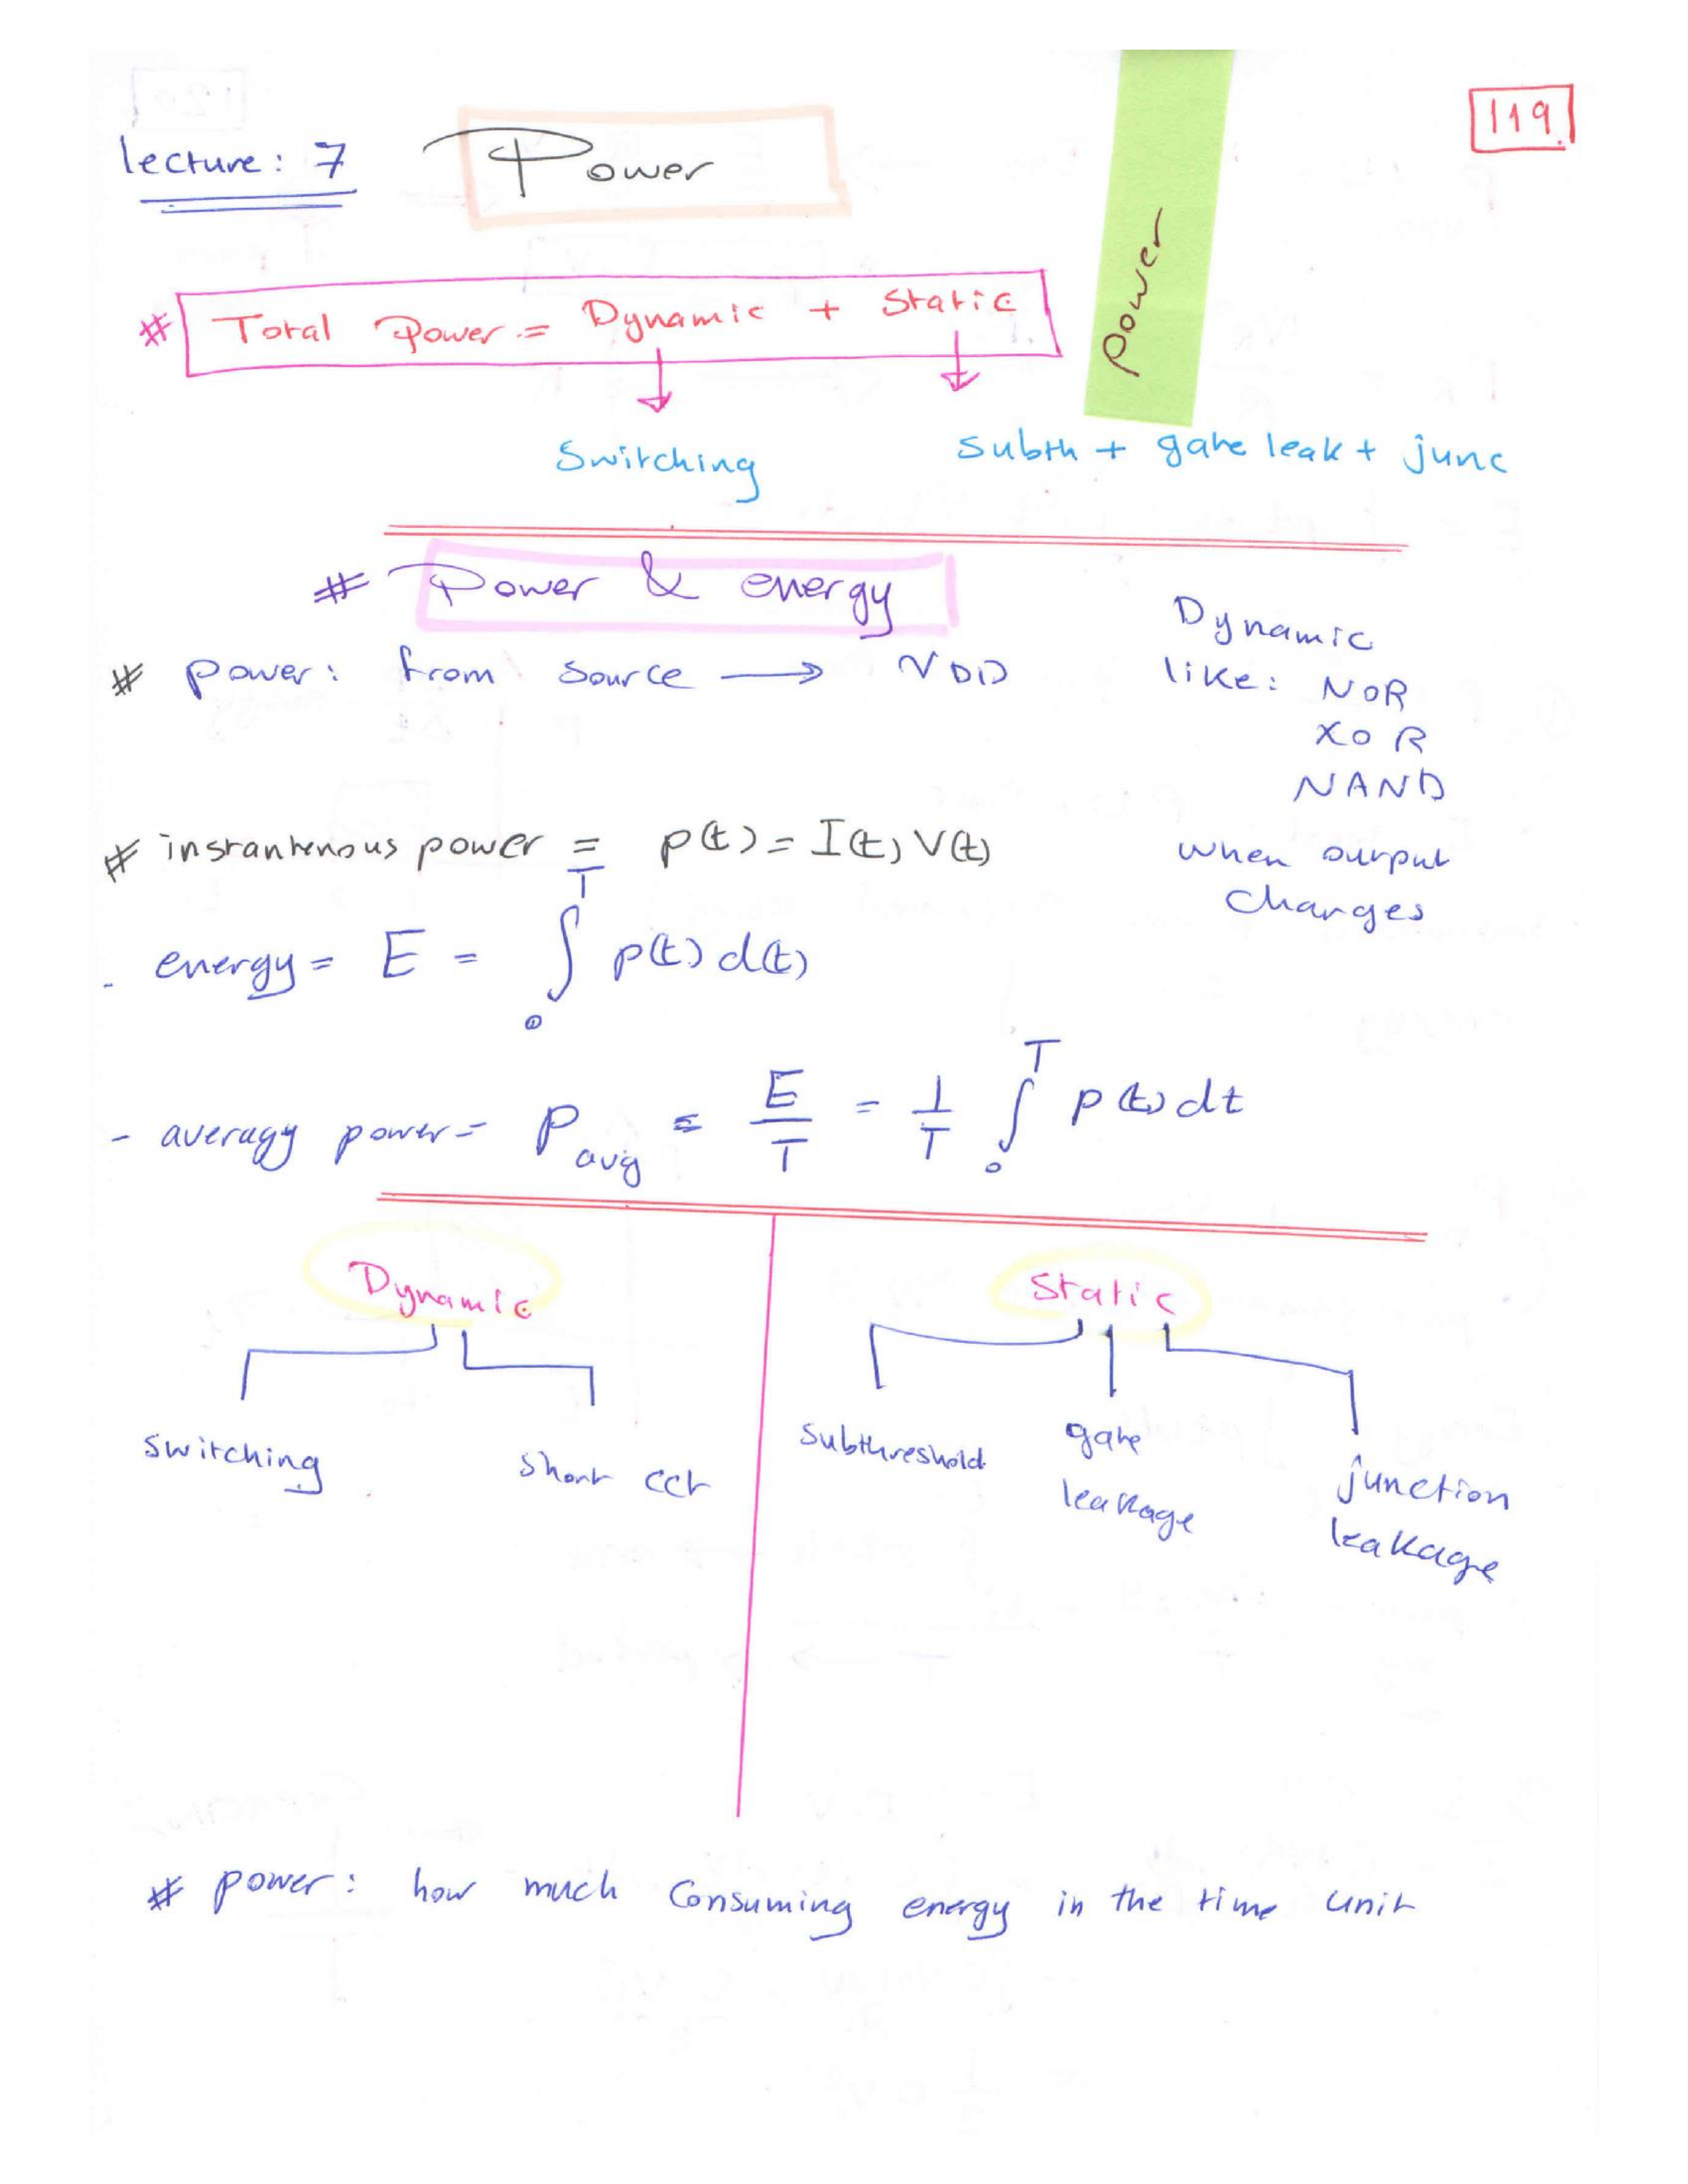 119
lecture: 7 Power
power
# Total Power = Dynamic + Static
Switching
subth + gate leak + junc
# Power & energy
# power: from source → VDD
Dynamic
like: NOR
XOR
NAND
when output
changes
# instantenous power = p(t) = I(t) V(t)
- energy = E = ∫₀ᵀ p(t) d(t)
- averagy power = P avg = E/T = 1/T ∫₀ᵀ p(t) dt
Dynamic
switching
short cct
Static
subthreshold
gate
leakage
junction
leakage
# power: how much consuming energy in the time unit